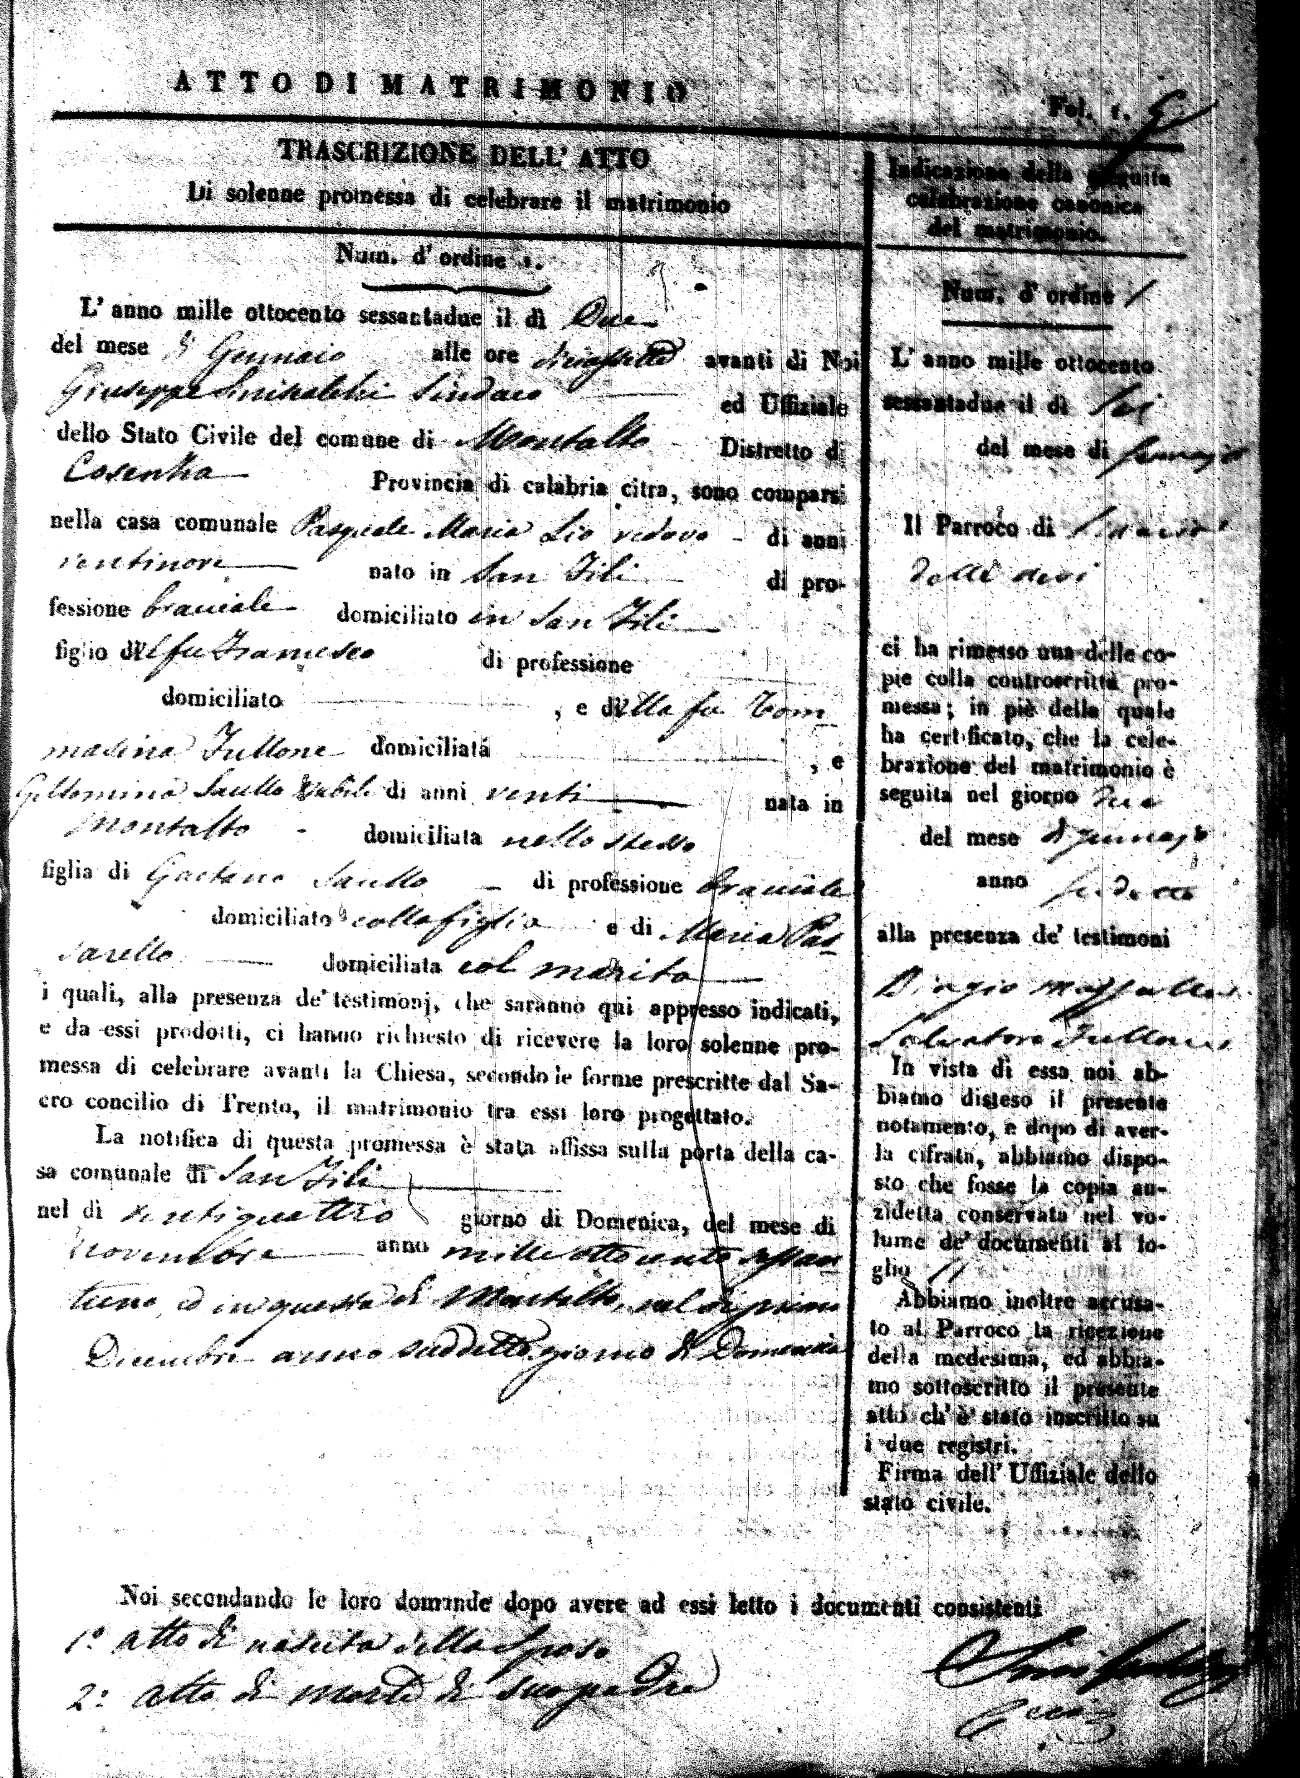 ATTO DI MATRIMONIO
Fol. 1.
TRASCRIZIONE DELL' ATTO
Di solenne promessa di celebrare il matrimonio
Num. d' ordine 1.
L' anno mille ottocento sessantadue il dì Due
del mese di Gennaio alle ore diciassette avanti di Noi
Giuseppe Sindaco ed Uffiziale
dello Stato Civile del comune di Montalto Distretto di
Cosenza Provincia di calabria citra, sono comparsi
nella casa comunale Pasquale Maria Lio vedovo di anni
ventinove nato in San Fili di pro-
fessione braciale domiciliato in San Fili
figlio del fu Francesco di professione
domiciliato , e della fu Tom
masina Fullone domiciliata , e
Saullo nubile di anni venti nata in
Montalto domiciliata nello stesso
figlia di Gaetano Saullo di professione braciale
domiciliato colla figlia e di Maria Pas
sarello domiciliata col marito
i quali, alla presenza de' testimonj, che saranno qui appresso indicati,
e da essi prodotti, ci hanno richiesto di ricevere la loro solenne pro-
messa di celebrare avanti la Chiesa, secondo le forme prescritte dal Sa-
cro concilio di Trento, il matrimonio tra essi loro progettato.
La notifica di questa promessa è stata affissa sulla porta della ca-
sa comunale di San Fili
nel dì ventiquattro giorno di Domenica, del mese di
Novembre anno mille ottocento sessan
tuno, ed in questa di Montalto, nel dì primo
Dicembre anno suddetto giorno di Domenica
Indicazione della seguita
celebrazione canonica
del matrimonio.
Num. d' ordine 1
L' anno mille ottocento
sessantadue il dì Sei
del mese di Gennajo
Il Parroco di
ci ha rimesso una delle co-
pie colla controscritta pro-
messa; in piè della quale
ha certificato, che la cele-
brazione del matrimonio è
seguita nel giorno due
del mese di Gennajo
anno sudetto
alla presenza de' testimoni
Biagio
Salvatore Fullone
In vista di essa noi ab-
biamo disteso il presente
notamento, e dopo di aver-
la cifrata, abbiamo dispo-
sto che fosse la copia an-
zidetta conservata nel vo-
lume de' documenti al fo-
glio 11
Abbiamo inoltre accusa-
to al Parroco la ricezione
della medesima, ed abbia-
mo sottoscritto il presente
atto ch' è stato inscritto su
i due registri.
Firma dell' Uffiziale dello
stato civile.
Noi secondando le loro domande dopo avere ad essi letto i documenti consistenti
1º atto di nascita dello Sposo
2º atto di morte di suo padre